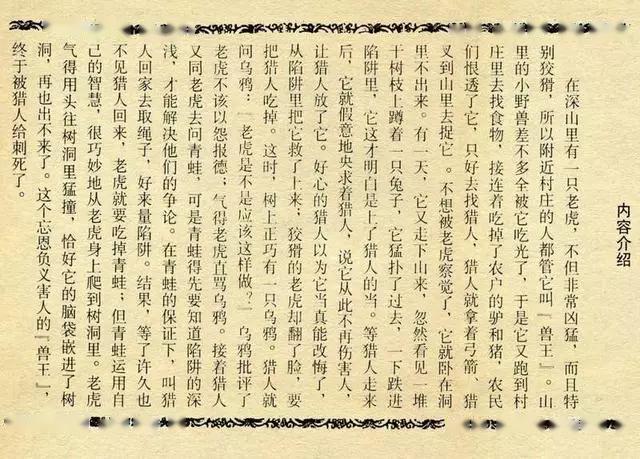 内容介绍
在深山里有一只老虎，不但非常凶猛，而且特
别狡猾，所以附近村庄的人都管它叫『兽王』。山
里的小野兽差不多全被它吃光了，于是它又跑到村
庄里去找食物，接连着吃掉了农户的驴和猪，农民
们恨透了它，只好去找猎人，猎人就拿着弓箭、猎
叉到山里去捉它。不想被老虎察觉了，它就卧在洞
里不出来。有一天，它又走下山来，忽然看见一堆
干树枝上蹲着一只兔子，它猛扑了过去，一下跌进
陷阱里，它这才明白是上了猎人的当。等猎人走来
后，它就假意地央求着猎人，说它从此不再伤害人，
让猎人放了它。好心的猎人以为它当真能改悔了，
从陷阱里把它救了上来；狡猾的老虎却翻了脸，要
把猎人吃掉。这时，树上正巧有一只乌鸦。猎人就
问乌鸦：『老虎是不是应该这样做？』乌鸦批评了
老虎不该以怨报德；气得老虎直骂乌鸦。接着猎人
又同老虎去问青蛙，可是青蛙得先要知道陷阱的深
浅，才能解决他们的争论。在青蛙的保证下，叫猎
人回家去取绳子，好来量陷阱。结果，等了许久也
不见猎人回来，老虎就要吃掉青蛙；但青蛙运用自
己的智慧，很巧妙地从老虎身上爬到树洞里。老虎
气得用头往树洞里猛撞，恰好它的脑袋嵌进了树
洞，再也出不来了。这个忘恩负义害人的『兽王』，
终于被猎人给刺死了。